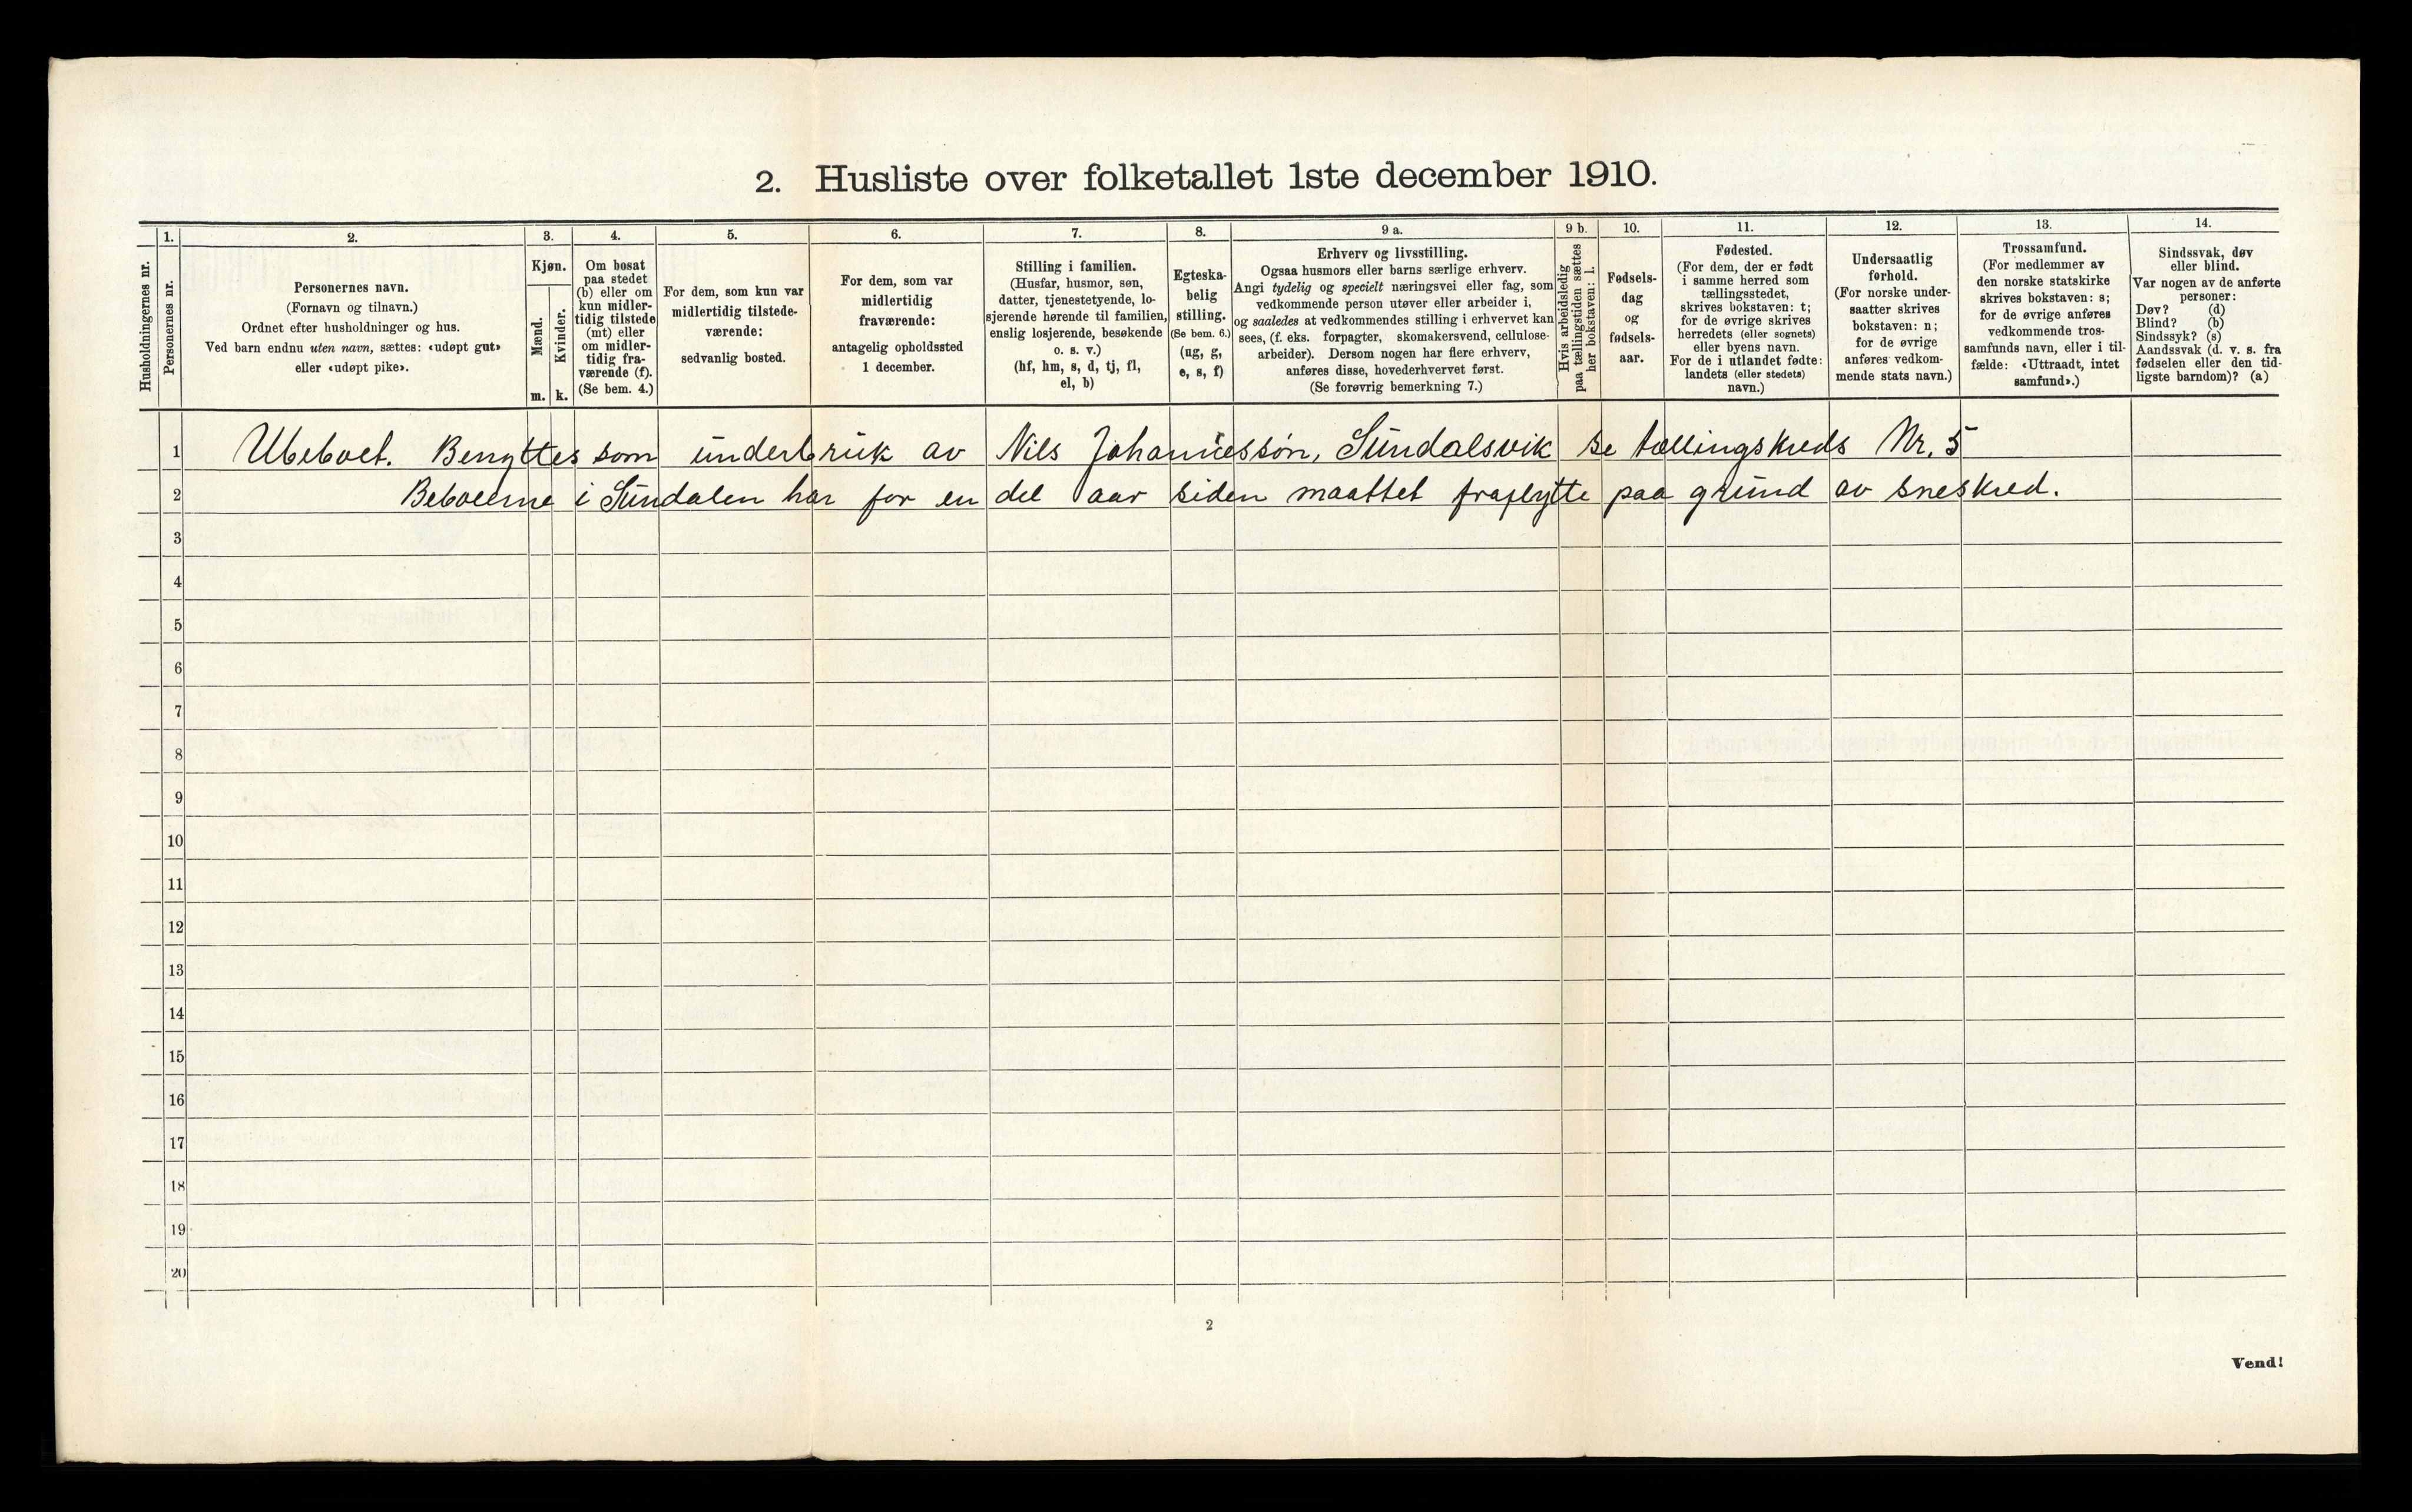 2. Husliste over folketallet 1ste december 1910.
Husholdningernes nr.
1.
Personernes nr.
2.
Personernes navn.
(Fornavn og tilnavn.)
Ordnet efter husholdninger og hus.
Ved barn endnu uten navn, sættes: «udøpt gut»
eller «udøpt pike».
3.
Kjøn.
Mænd.
Kvinder.
m. k.
4.
Om bosat
paa stedet
(b) eller om
kun midler-
tidig tilstede
(mt) eller
om midler-
tidig fra-
værende (f).
(Se bem. 4.)
5.
For dem, som kun var
midlertidig tilstede-
værende:
sedvanlig bosted.
6.
For dem, som var
midlertidig
fraværende:
antagelig opholdssted
1 december.
7.
Stilling i familien.
(Husfar, husmor, søn,
datter, tjenestetyende, lo-
sjerende hørende til familien,
enslig losjerende, besøkende
o. s. v.)
(hf, hm, s, d, tj, fl,
el, b)
8.
Egteska-
belig
stilling.
(Se bem. 6.)
(ug, g,
e, s, f)
9 a.
Erhverv og livsstilling.
Ogsaa husmors eller barns særlige erhverv.
Angi tydelig og specielt næringsvei eller fag, som
vedkommende person utøver eller arbeider i,
og saaledes at vedkommendes stilling i erhvervet kan
sees, (f. eks. forpagter, skomakersvend, cellulose-
arbeider). Dersom nogen har flere erhverv,
anføres disse, hovederhvervet først.
(Se forøvrig bemerkning 7.)
9 b.
Hvis arbeidsledig
paa tællingstiden sættes
her bokstaven: l.
10.
Fødsels-
dag
og
fødsels-
aar.
11.
Fødested.
(For dem, der er født
i samme herred som
tællingsstedet,
skrives bokstaven: t;
for de øvrige skrives
herredets (eller sognets)
eller byens navn.
For de i utlandet fødte:
landets (eller stedets)
navn.)
12.
Undersaatlig
forhold.
(For norske under-
saatter skrives
bokstaven: n;
for de øvrige
anføres vedkom-
mende stats navn.)
13.
Trossamfund.
(For medlemmer av
den norske statskirke
skrives bokstaven: s;
for de øvrige anføres
vedkommende tros-
samfunds navn, eller i til-
fælde: «Uttraadt, intet
samfund».)
14.
Sindssvak, døv
eller blind.
Var nogen av de anførte
personer:
Døv? (d)
Blind? (b)
Sindssyk? (s)
Aandssvak (d. v. s. fra
fødselen eller den tid-
ligste barndom)? (a)
1 Ubeboet. Benyttes som underbruk av Nils Johannessøn, Sundalsvik se tællingskreds Nr. 5
2 Beboerne i Sundalen har for en del aar siden maattet fraflytte paa grund av sneskred.
3
4
5
6
7
8
9
10
11
12
13
14
15
16
17
18
19
20
2
Vend!